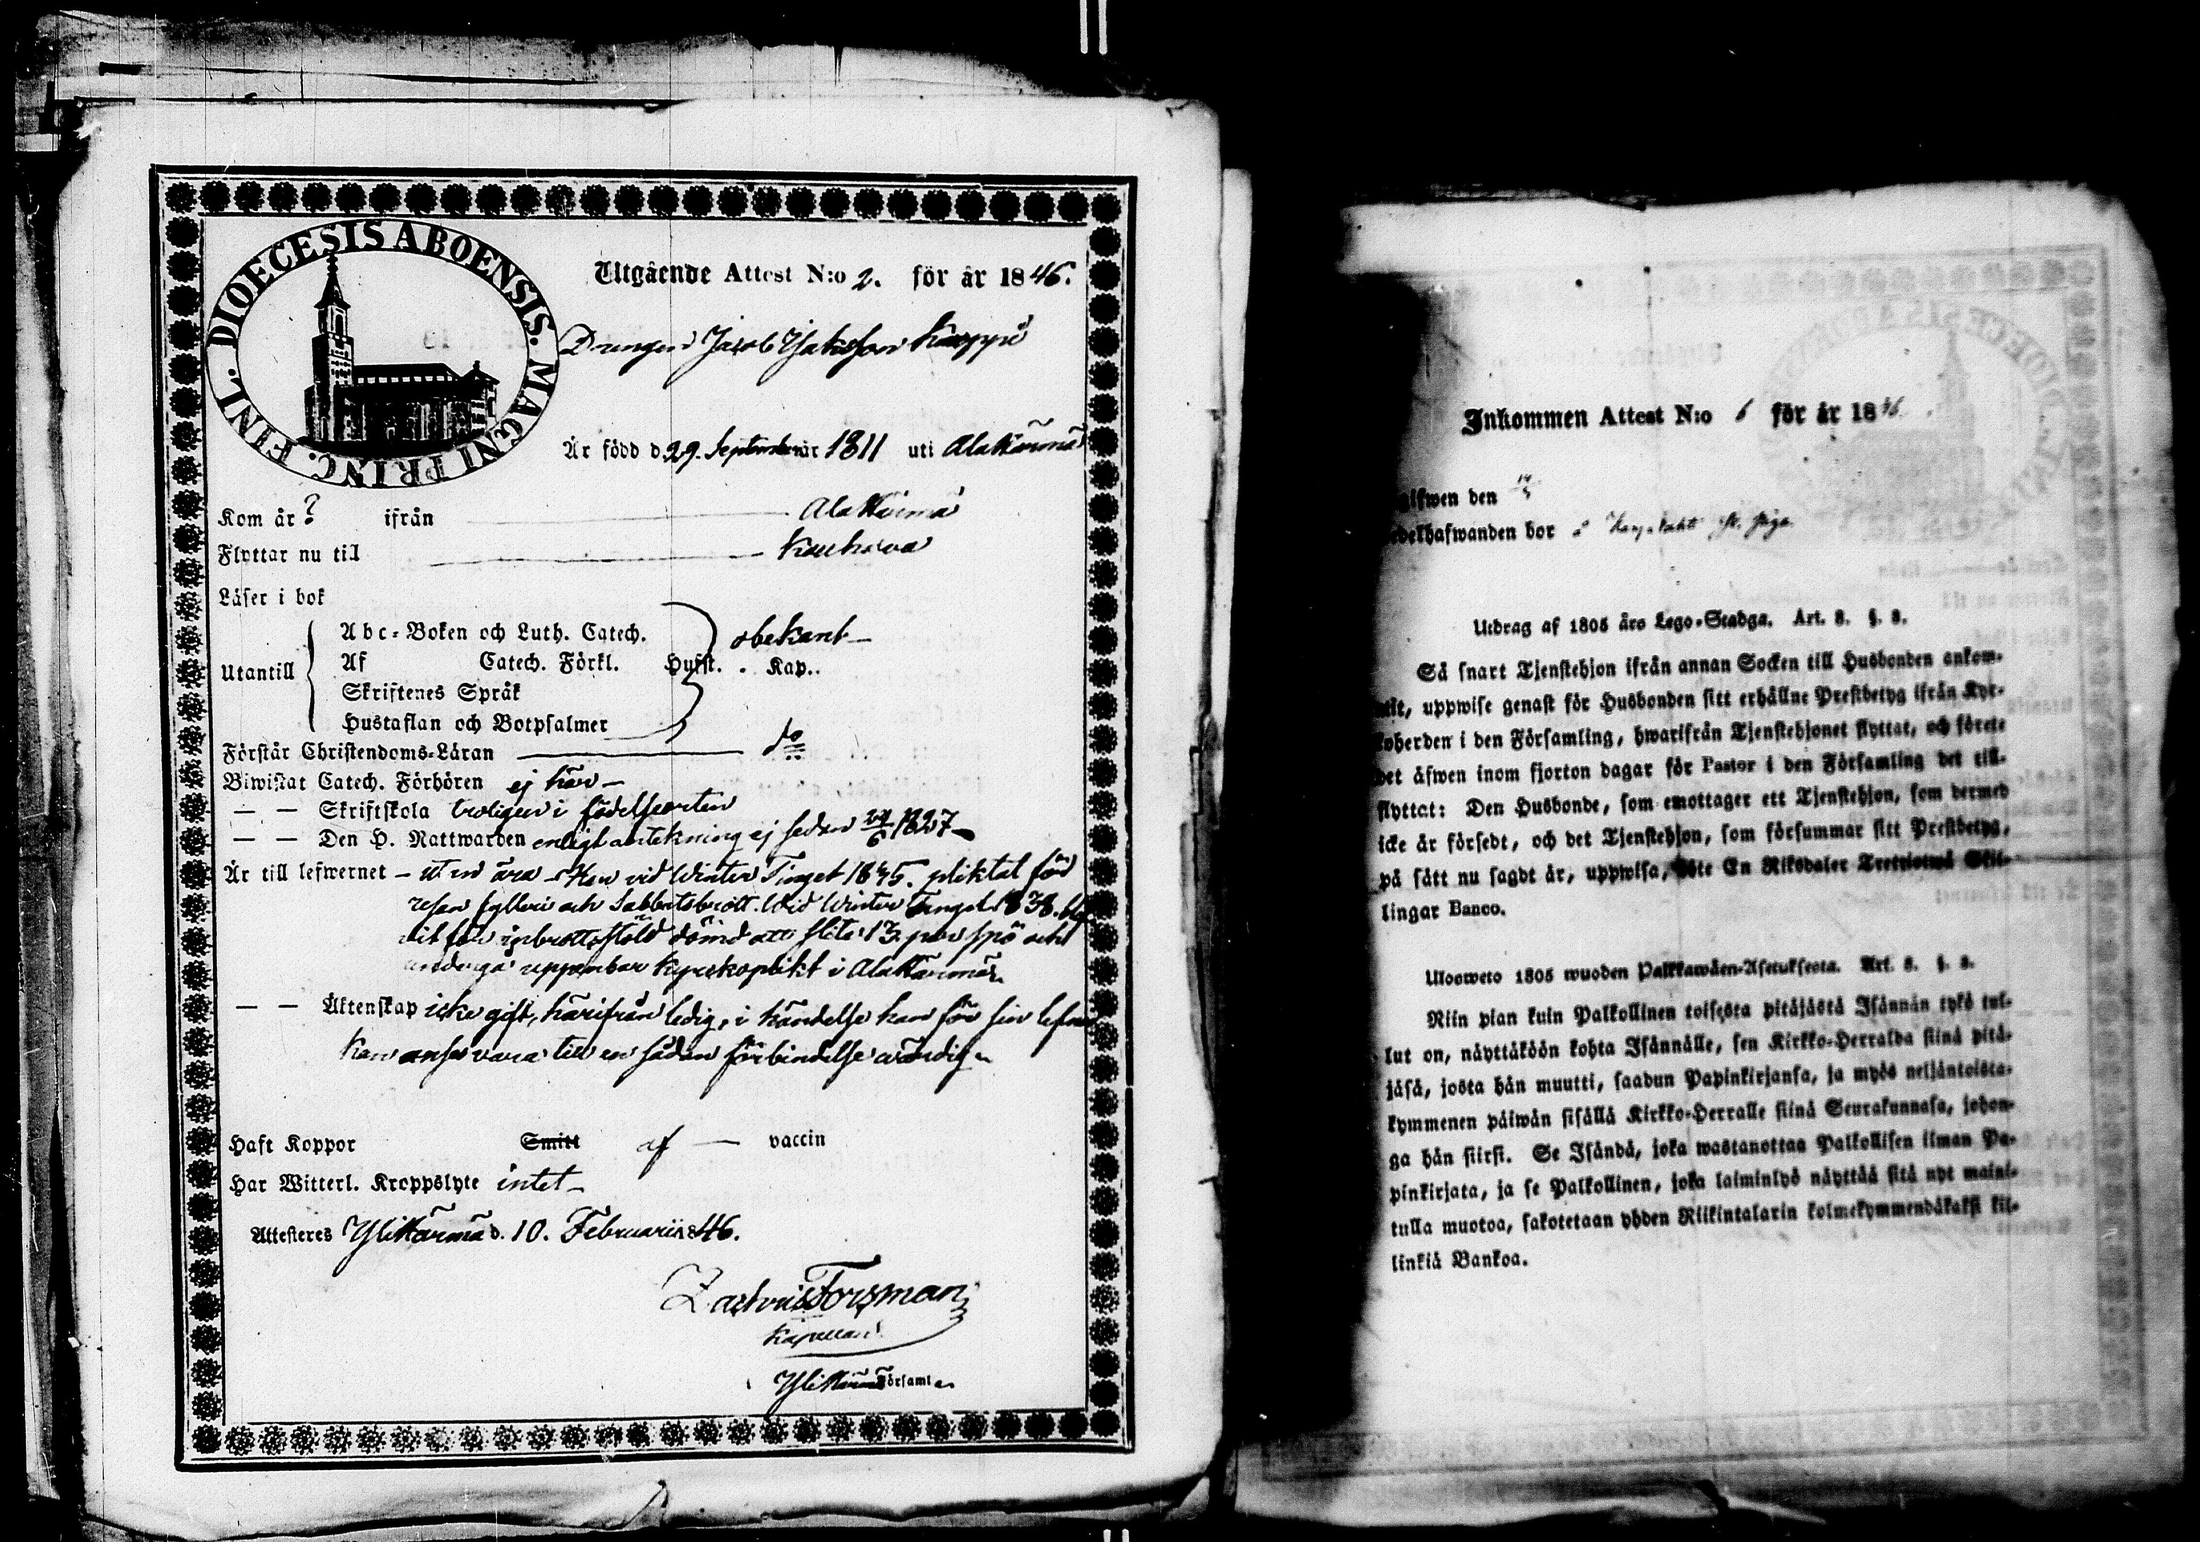 DIOECESIS ABOENSIS. MAGNI PRINC. FINL.
Utgående Attest N:o 2. för år 1846.
Drengen Jacob Jakobson Kaappå
Är född d. 29. September år 1811 uti Alakärmä
Kom år ? ifrån Alakärmä
Flyttar nu till Kauhava
Läser i bok
Utantill
Abc-Boken och Luth. Catech. obekant
Af Catech. Förkl. Hufst. Kap.
Skriftenes Språk
Hustaflan och Botpsalmer
Förstår Christendoms-Läran do
Biwistat Catech. Förhören ej här
— — Skriftskola troligen i födelseorten
— — Den H. Nattwarden enligt antekning ej sedan 24/6 1827
Är till lefwernet – utan ära – Han vid Winter Tinget 1845. pliktat förd
resan fylleri och Sabbatsbrott. Wid Winter Tinget 1838. bli-
vit för inbrottsstöld dömd att slita 13. par spö och
undergå uppenbar Kyrkoplikt i Alakärmä.
— — Äktenskap icke gift, härifrån ledig, i händelse han för sin lefnad
kan anses vara till en sådan förbindelse värdig
Haft Koppor Smitt af — vaccin
Har Witterl. Kroppslyte intet
Attesteres Ylikärmä d. 10. Februarii 1846.
Zachris Forsman
Kapellan i
Ylikärmä Församl.
Inkommen Attest N:o 6 för år 1846.
ifwen den
edelhafwanden bor
Utdrag af 1805 års Lego-Stadga. Art. 8. §. 8.
Så snart Tjenstehjon ifrån annan Socken till Husbonden ankom-
mit, uppwise genast för Husbonden sitt erhållne Prestbetyg ifrån Kyr-
koherden i den Församling, hwarifrån Tjenstehjonet flyttat, och förete
det äfwen inom fjorton dagar för Pastor i den Församling det till-
flyttat: Den Husbonde, som emottager ett Tjenstehjon, som dermed
icke är försedt, och det Tjenstehjon, som försummar sitt Prestbetyg,
på sätt nu sagdt är, uppwisa, böte En Riksdaler Tretiotwå Skil-
lingar Banco.
Ulosweto 1805 wuoden Palkkawäen-Asetuksesta. Art. 8. §. 8.
Niin pian kuin Palkollinen toisesta pitäjästä Isännän tykö tul-
lut on, näyttäköön kohta Isännälle, sen Kirkko-Herralda siinä pitä-
jäsä, josta hän muutti, saadun Papinkirjansa, ja myös neljäntoista-
kymmenen päiwän sisällä Kirkko-Herralle siinä Seurakunnasa, johon-
ga hän siirsi. Se Isändä, joka wastanottaa Palkollisen ilman Pa-
pinkirjata, ja se Palkollinen, joka laiminlyö näyttää sitä nyt maini-
tulla muotoa, sakotetaan yhden Riikintalarin kolmekymmendäkaksi kil-
linkiä Bankoa.